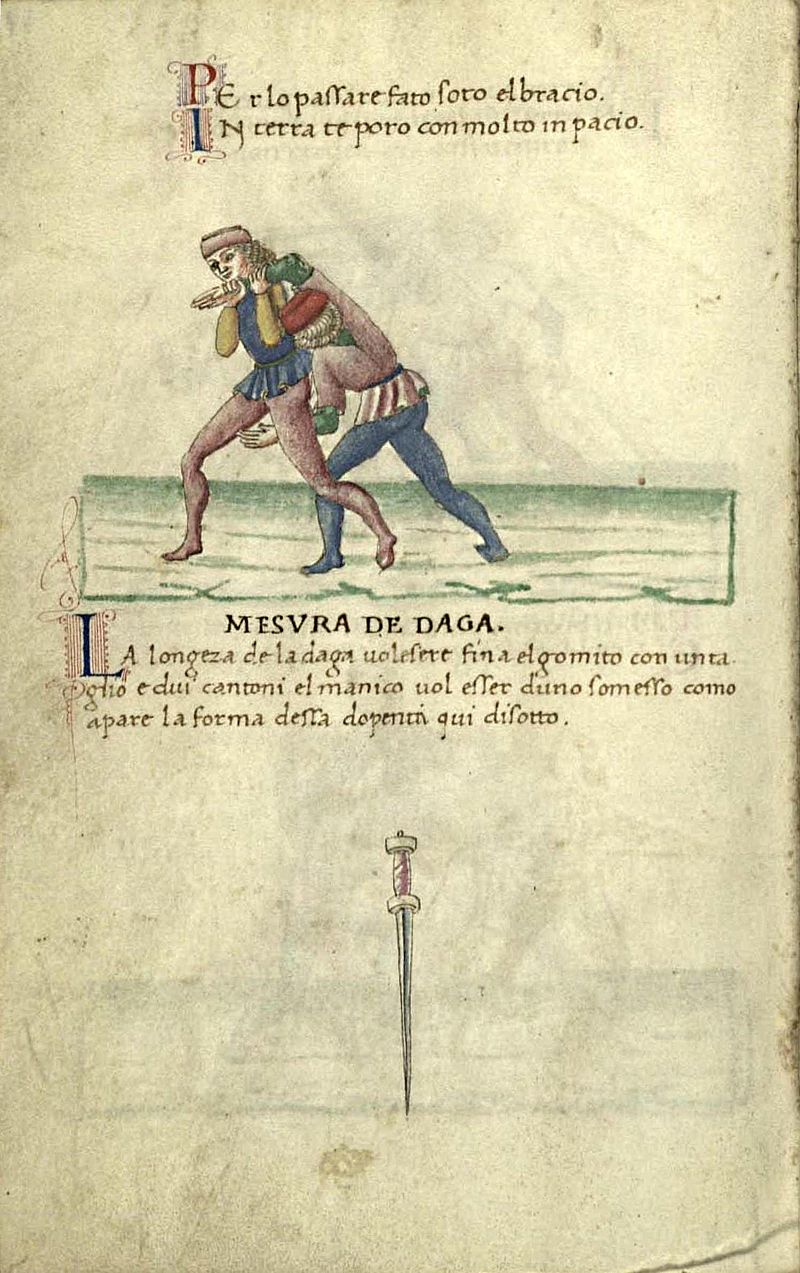 PEr lo passare fato soto el bracio.
IN terra te poro con molto inpacio.
MESVRA DE DAGA.
LA longeza de la daga uol esere fina el gomito con un ta
glio e dui cantoni el manico uol esser d'uno somesso como
apare la forma dessa depenta qui disotto.